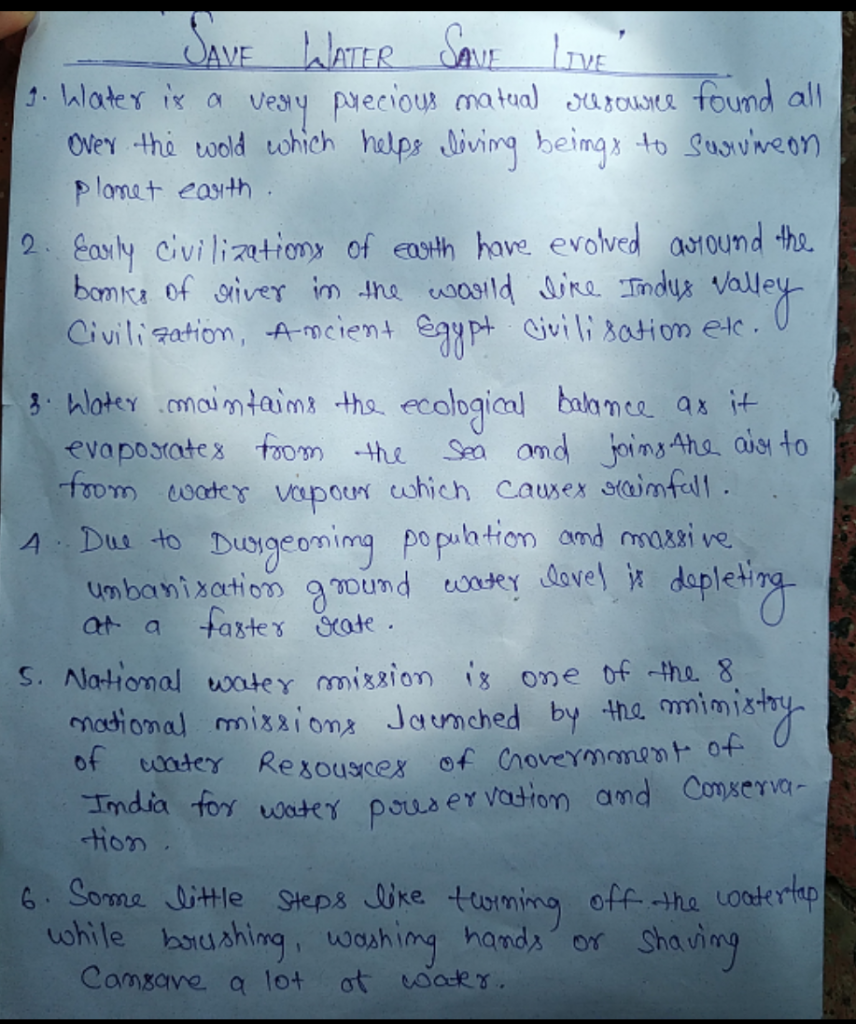 'SAVE WATER SAVE LIVE'
1. Water is a very precious matual resource found all
over the wold which helps living beings to Surviveon
planet earth.
2. Early Civilizations of earth have evolved around the
banks of river in the world like Indus Valley
Civilization, Ancient Egypt civilisation etc.
3. Water maintains the ecological balance as it
evaporates from the Sea and joins the air to
from water vapour which causes rainfall.
4. Due to Durgeoning population and massive
umbanisation ground water level is depleting
at a faster rate.
5. National water mission is one of the 8
national missions Jaunched by the ministry
of water Resources of Government of
India for water preservation and Conserva-
tion.
6. Some little steps like turning off the watertap
while brushing, washing hands or Shaving
Cansave a lot ot water.